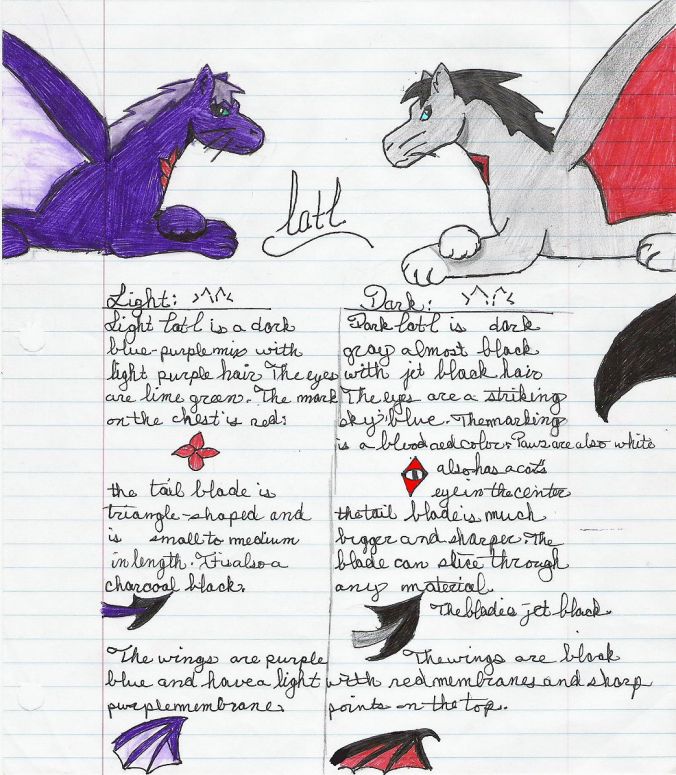 latl
Light:
Light latl is a dark
blue-purple mix with
light purple hair The eyes
are lime green. The mark
on the chest is red:
the tail blade is
triangle-shaped and
is small to medium
in length. It is also a
charcoal black.
The wings are purple
blue and have a light
purple membrane.
Dark:
Dark latl is dark
gray almost black
with jet black hair
The eyes are a striking
sky blue. The marking
is a blood red color. Paws are also white
also has a cat's
eye in the center
the tail blade is much
bigger and sharper. The
blade can slice through
any material.
The blade is jet black.
The wings are black
with red membranes and sharp
points on the top.